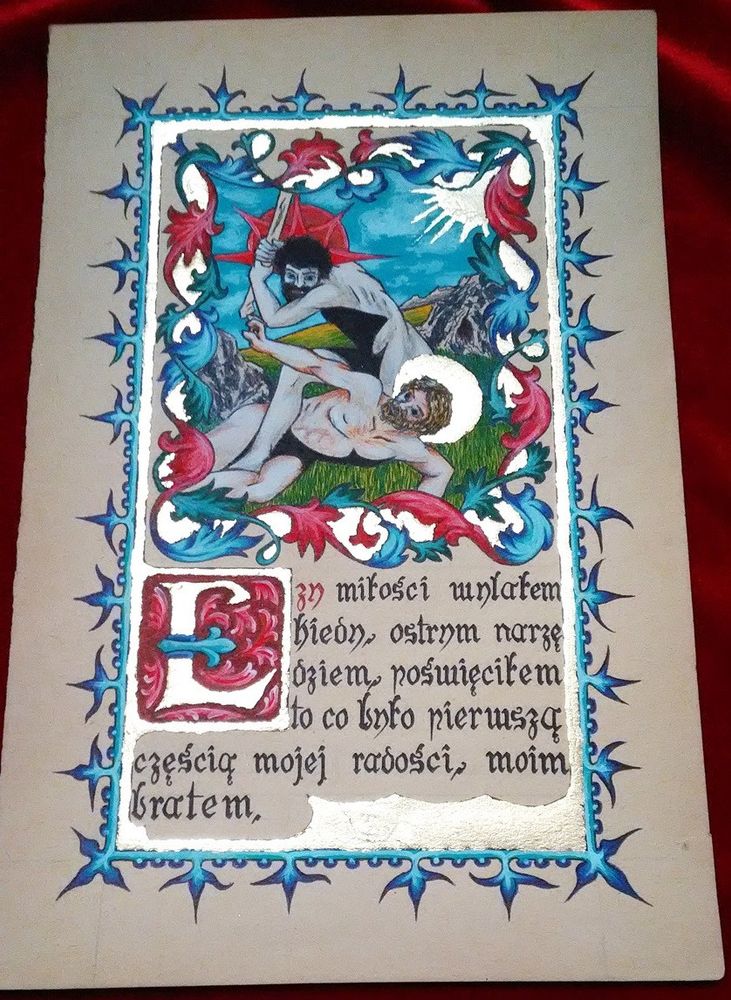 Łzy miłości wylałem
kiedy, ostrym narzę
dziem, poświęciłem
to co było pierwszą
częścią mojej radości, moim
bratem.